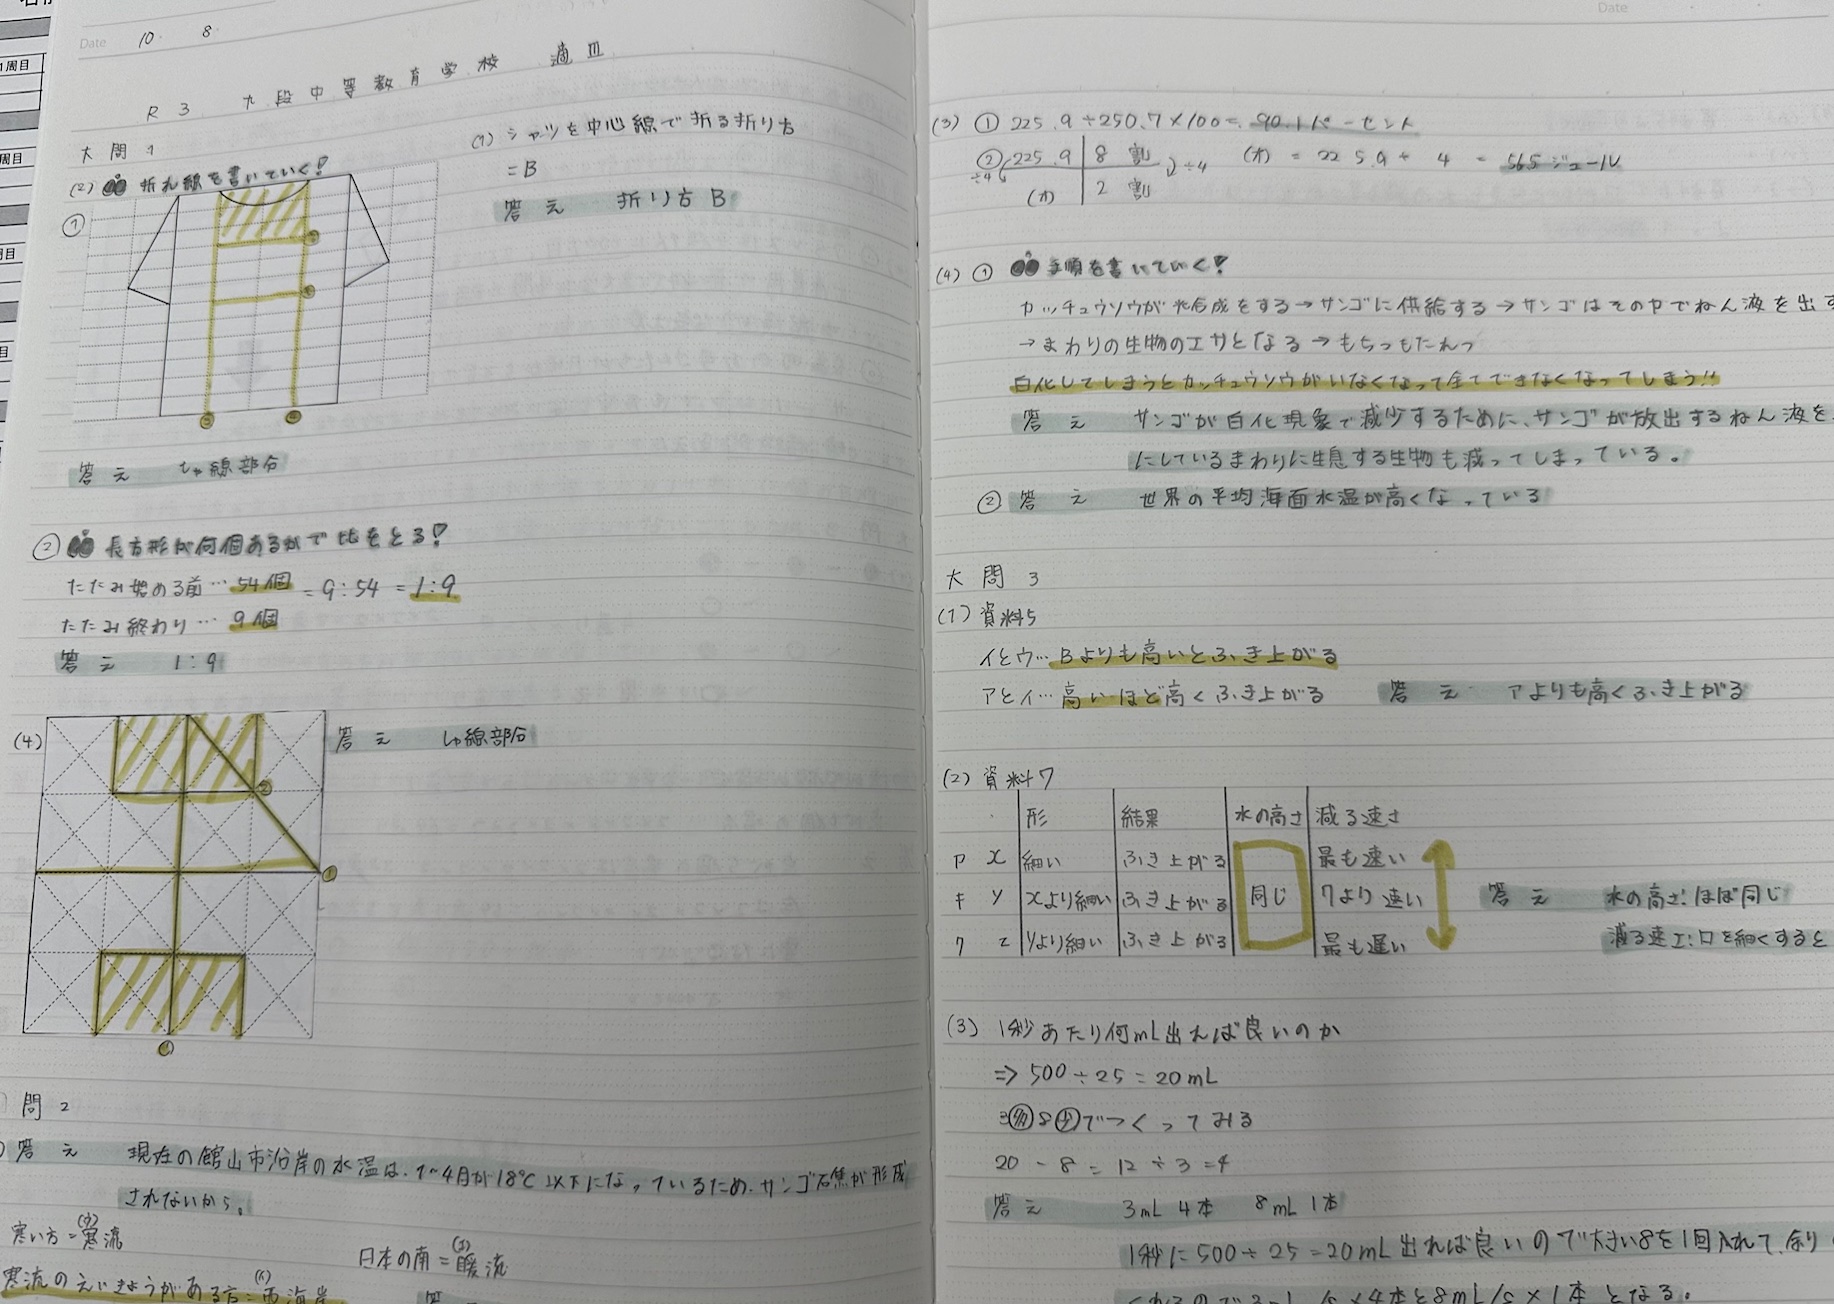 Date 10. 8.
R3 九段中等教育学校 適Ⅲ
大問1
(1) シャツを中心線で折る折り方
=B
答え 折り方B
(2) 折れ線を書いていく!
①
答え しゃ線部分
② 長方形が何個あるかで比をとる!
たたみ始める前…54個 = 9:54 = 1:9
たたみ終わり…9個
答え 1:9
(4)
答え しゃ線部分
問2
答え 現在の館山市沿岸の水温は、1~4月が18℃以下になっているため、サンゴ石焦が形成
されないから。
寒い方=寒流
日本の南=暖流
寒流のえいきょうがある方=西海岸
答
Date
(3) ① 225.9÷250.7×100=90.1パーセント
② 225.9 8割 ÷4 (オ) = 225.9÷4 = 56.5ジュール
÷4 (オ) 2割
(4) ① 手順を書いていく!
カッチュウソウが光合成をする→サンゴに供給する→サンゴはその中でねん液を出す
→まわりの生物のエサとなる→もちつもたれつ
白化してしまうとカッチュウソウがいなくなって全てできなくなってしまう!!
答え サンゴが白化現象で減少するために、サンゴが放出するねん液を
にしているまわりに生息する生物も減ってしまっている。
② 答え 世界の平均海面水温が高くなっている
大問3
(1) 資料5
イとウ…Bよりも高いとふき上がる
アとイ…高いほど高くふき上がる 答え アよりも高くふき上がる
(2) 資料7
形 結果 水の高さ 減る速さ
カ X 細い ふき上がる 最も速い
キ Y Xより細い ふき上がる 同じ クより速い 答え 水の高さ:ほぼ同じ
ク Z Yより細い ふき上がる 最も遅い 減る速さ:口を細くすると
(3) 1秒あたり何mL出れば良いのか
⇒ 500÷25=20mL
3多8少でつくってみる
20-8=12÷3=4
答え 3mL 4本 8mL 1本
1秒に500÷25=20mL出れば良いので大きい8を1回入れて、余り
×4本と8mL/s×1本となる。